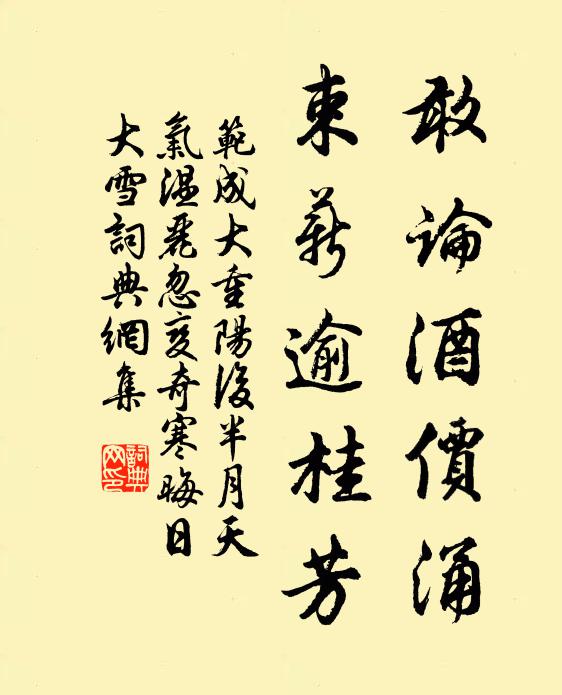 敢論酒價涌
束薪逾桂芳
範成大重陽後半月天
氣溫麗忽變奇寒晦日
大雪詞典網集
詞典
网印